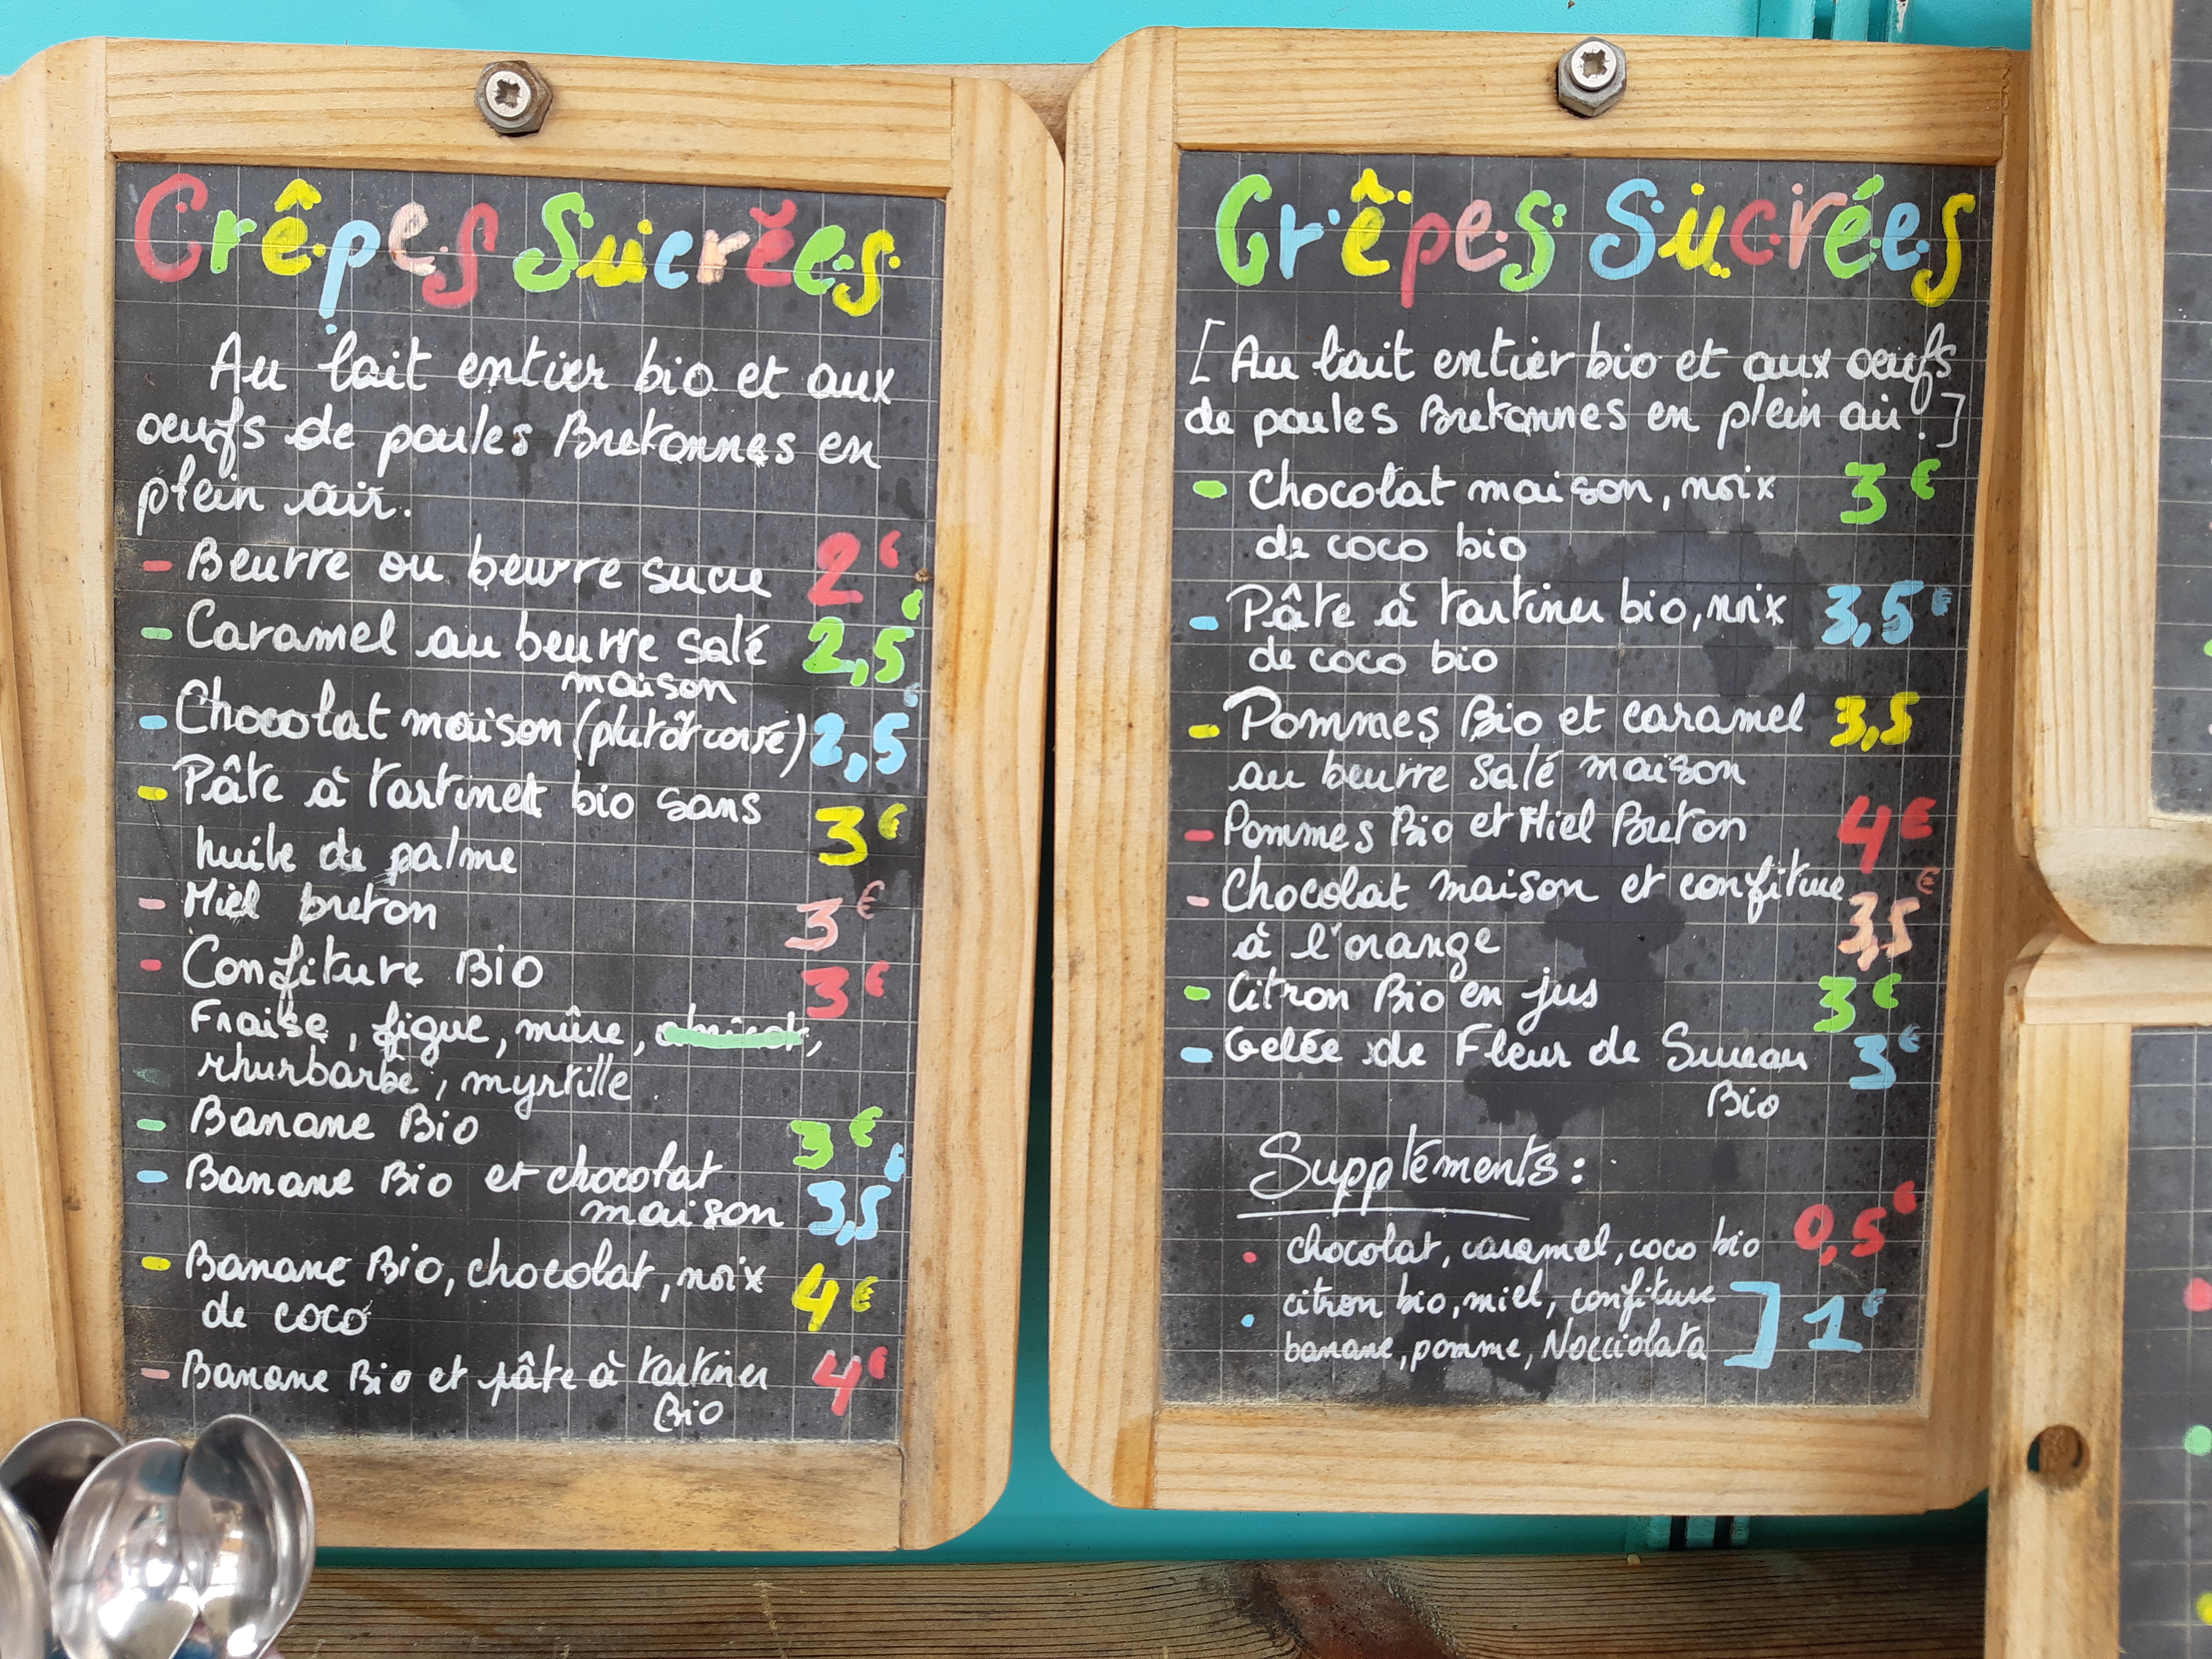 Crêpes Sucrées
Au lait entier bio et aux
oeufs de poules Bretonnes en
plein air.
- Beurre ou beurre sucre 2€
- Caramel au beurre salé 2,5€
maison
- Chocolat maison (plutôt corsé) 2,5€
- Pâte à tartiner bio sans
huile de palme 3€
- Miel breton 3€
- Confiture Bio 3€
Fraise, figue, mûre, abricot,
rhurbarbe, myrtille
- Banane Bio 3€
- Banane Bio et chocolat
maison 3,5€
- Banane Bio, chocolat, noix 4€
de coco
- Banane Bio et pâte à tartiner 4€
Bio
Crêpes Sucrées
[Au lait entier bio et aux oeufs
de poules Bretonnes en plein air.]
- Chocolat maison, noix 3€
de coco bio
- Pâte à tartiner bio, noix 3,5€
de coco bio
- Pommes Bio et caramel 3,5
au beurre salé maison
- Pommes Bio et Miel Breton 4€
- Chocolat maison et confiture
à l'orange 3,5€
- Citron Bio en jus 3€
- Gelée de Fleur de Sureau 3€
Bio
Suppléments :
chocolat, caramel, coco bio 0,5€
citron bio, miel, confiture
banane, pomme, Nocciolata ] 1€